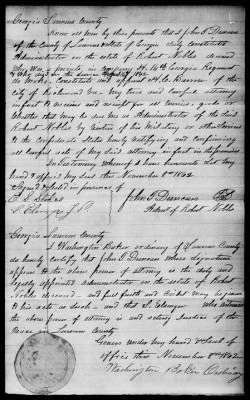 Georgia Laurens County
Know all men by these presents that I John T Duncan
of the County of Laurens & State of Georgia duly constituted
Administrator on the estate of Robert Nobles deceased
who was a private in company H. 14th Georgia Regiment
& who died in the service 1862
do make, Constitute and appoint H. C. Barrow of the
City of Richmond Va. My true and lawful attorney
in fact to receive and receipt for all monies, goods or
Chattels that may be due me as Administrator of the said
Robert Nobles by virtue of his Soldiery or otherwise
in the Confederate State hereby ratifying and confirming
all lawful acts of my said attorney in fact in the premises
In testimony whereof I have hereunto set my
hand & affix my seal this November 8th 1862
Signed & sealed in presence of
John T Duncan
of Robert Nobles
Georgia Laurens County
I Washington Baker ordinary of Laurens County
do hereby certify that John T Duncan whose signature
appears to the above power of attorney is the duly and
legally appointed administrator on the estate of Robert
Nobles deceased - and full faith and credit may be given
to his acts as such - and that
the above power of attorney is an acting Justice of the
Peace in Laurens County
Given under my hand & Seal of
office this November 8th 1862
Washington Baker Ordinary